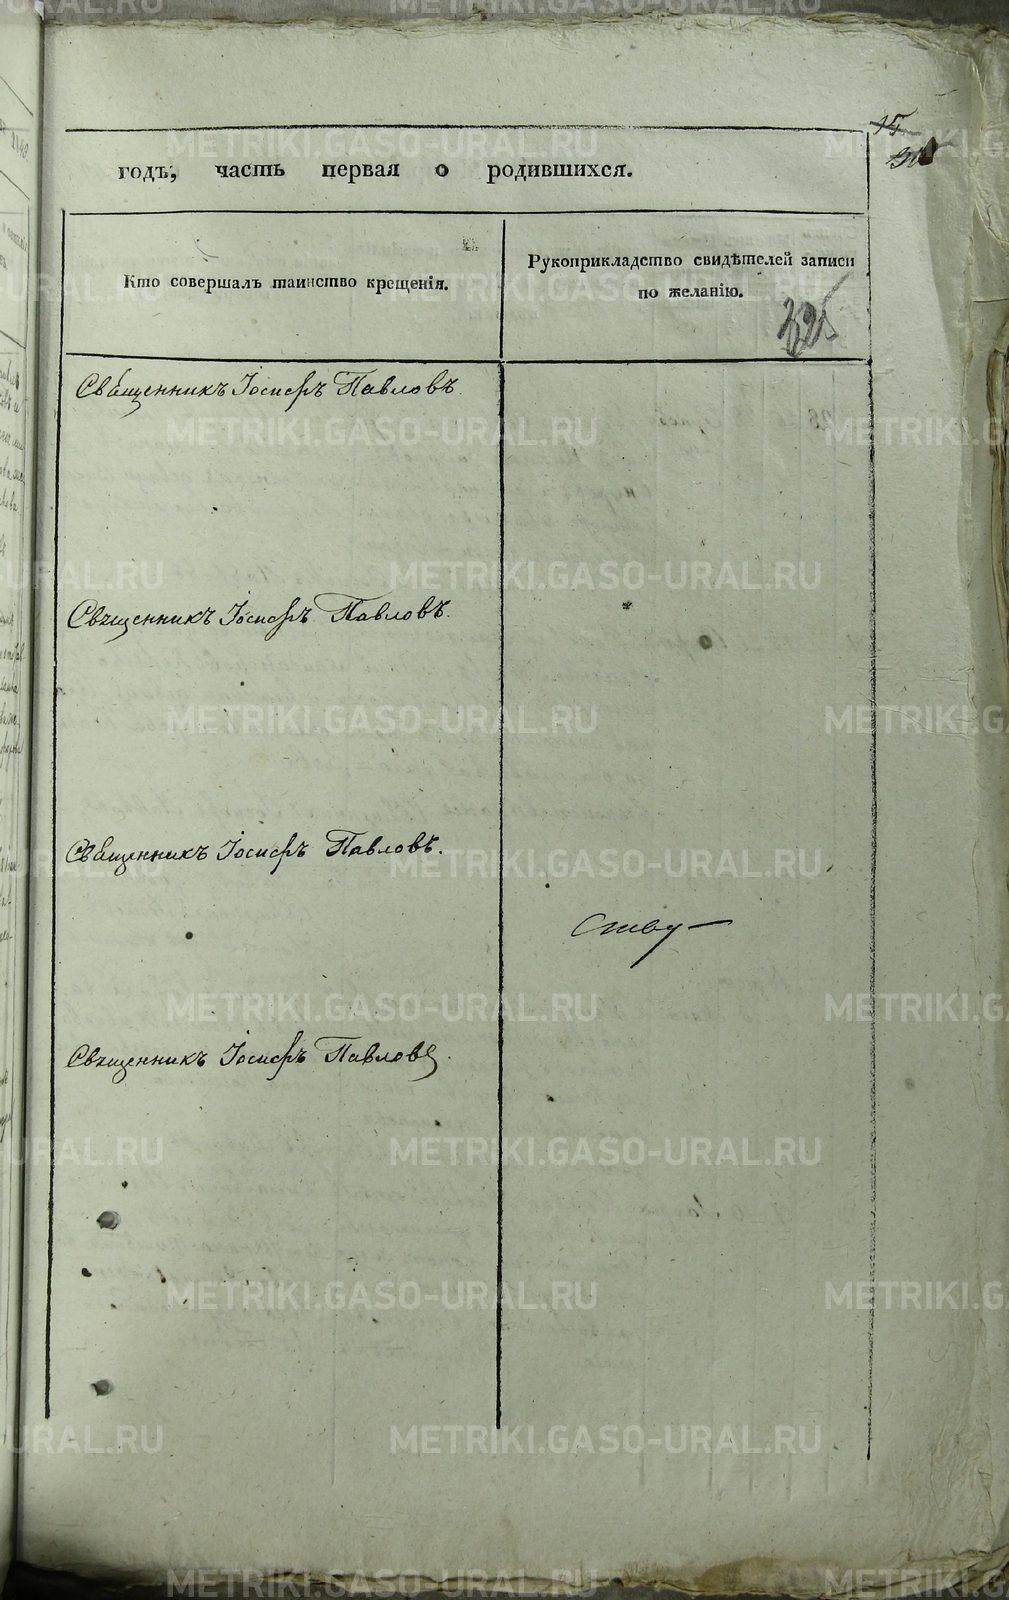 15
годъ, часть первая о родившихся.
Кто совершалъ таинство крещенія.
Рукоприкладство свидѣтелей записи
по желанію.
Священникъ Іосифъ Павловъ.
Священникъ Іосифъ Павловъ.
Священникъ Іосифъ Павловъ.
Священникъ Іосифъ Павловъ.
METRIKI.GASO-URAL.RU